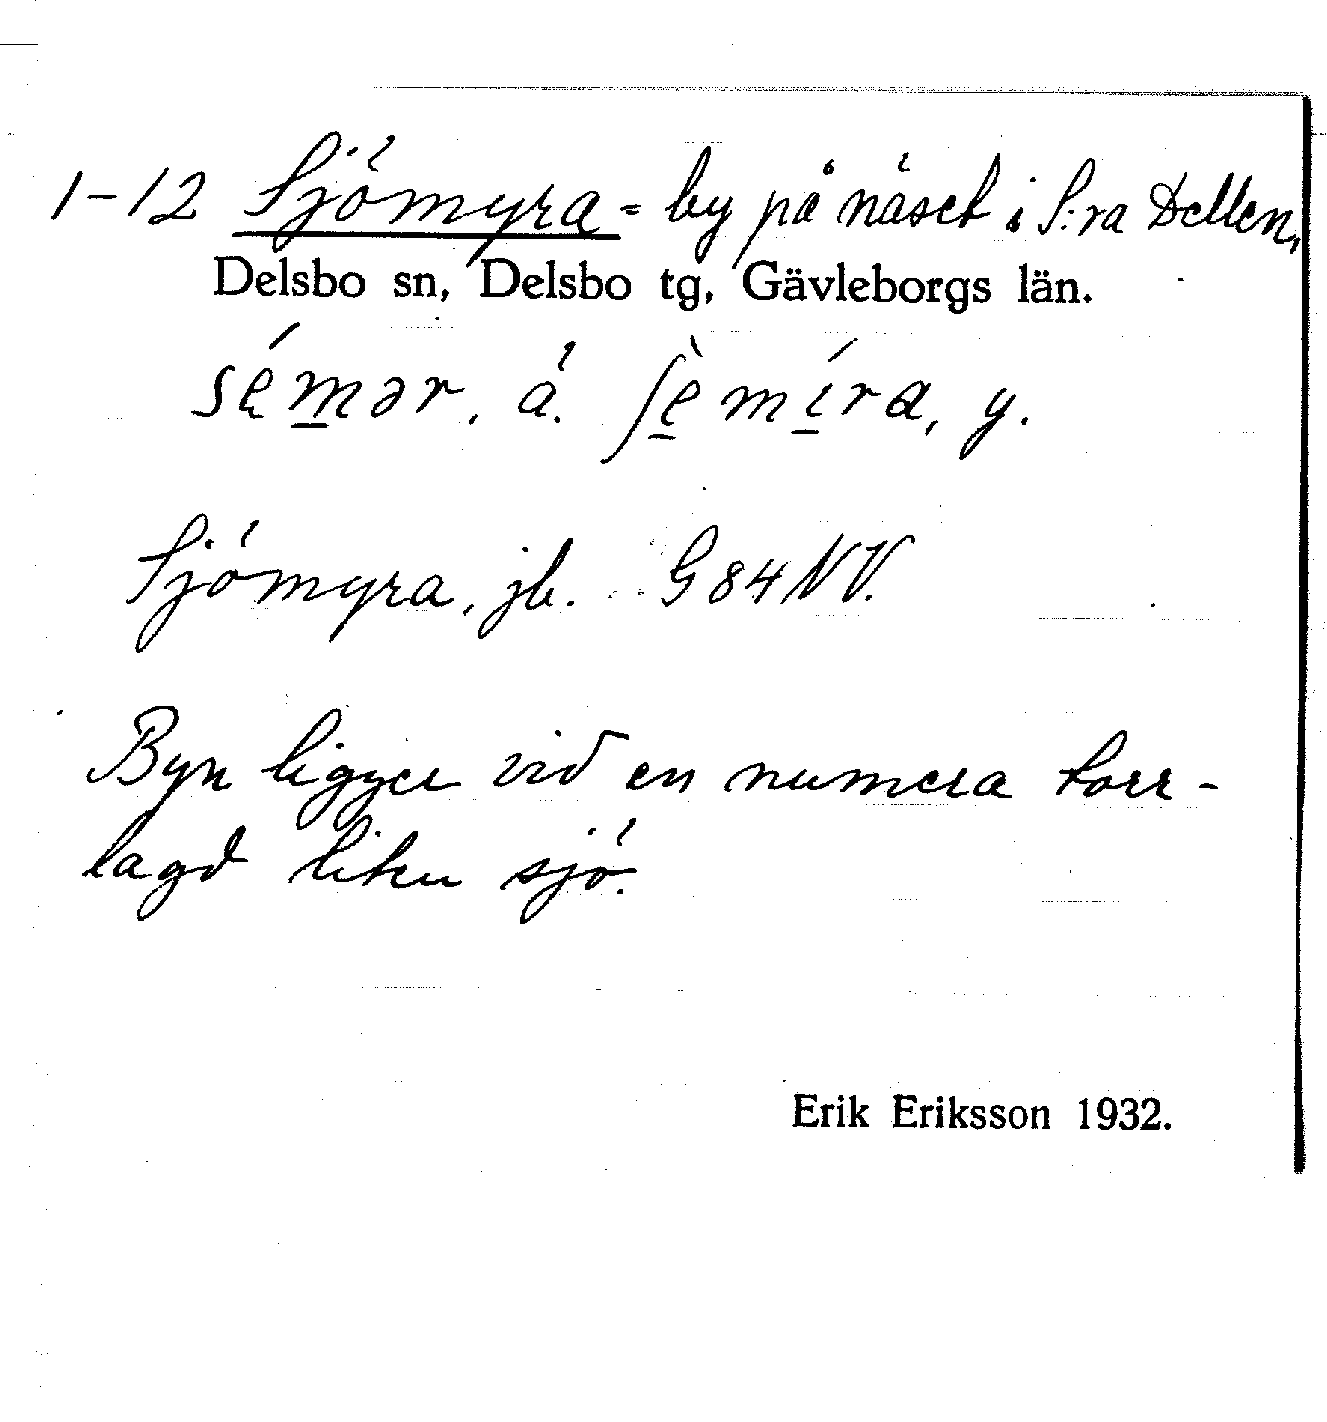 1-12 Sjömyra = by på näset i S:ra Dellen,
Delsbo sn, Delsbo tg, Gävleborgs län.
sémər, ä. ʃèmíra, y.
Sjömyra, jb. G84NV.
Byn ligger vid en numera torr-
lagd liten sjö.
Erik Eriksson 1932.